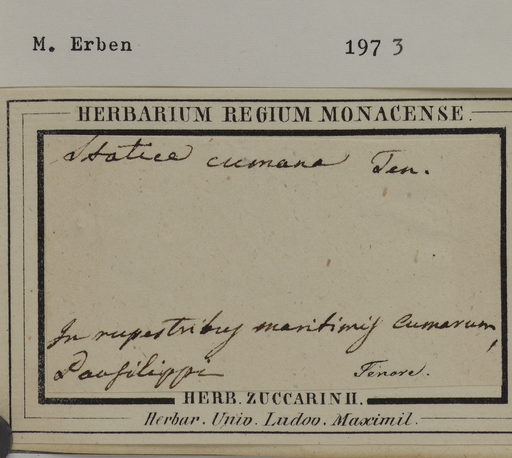 M. Erben 1973
HERBARIUM REGIUM MONACENSE.
Statice cumana Ten.
In rupestribus maritimis Cumarum,
Pausilippi Tenore.
HERB. ZUCCARINII.
Herbar. Univ. Ludov. Maximil.